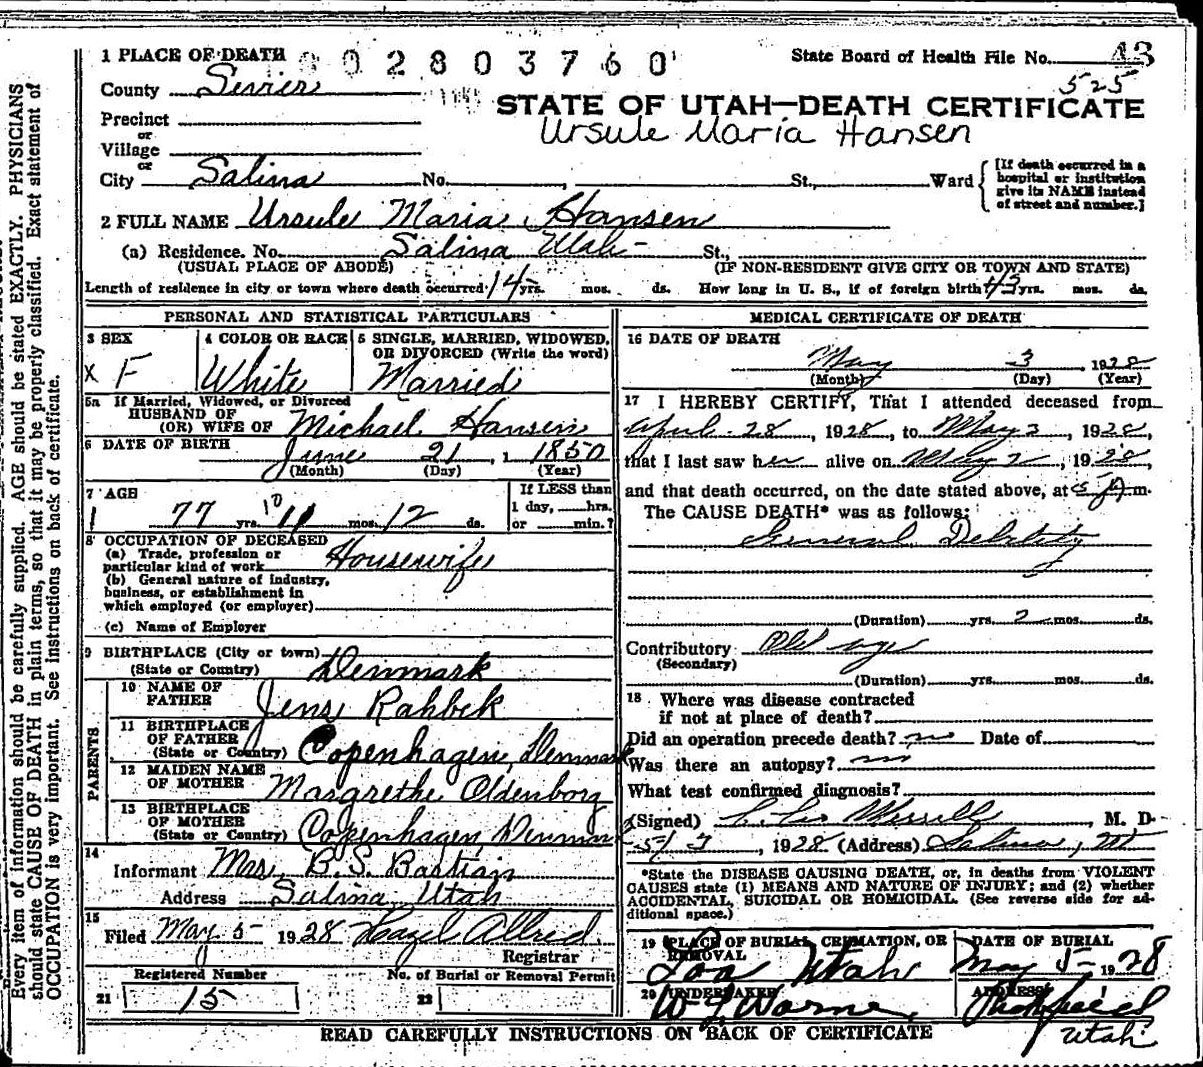 1 PLACE OF DEATH
002803760
State Board of Health File No. 43
525
County Sevier
STATE OF UTAH—DEATH CERTIFICATE
Ursule Maria Hansen
Precinct
or
Village
or
City Salina No. , St., Ward
[If death occurred in a
hospital or institution
give its NAME instead
of street and number.]
2 FULL NAME Ursule Maria Hansen
(a) Residence. No. Salina Utah St.,
(USUAL PLACE OF ABODE) (IF NON-RESIDENT GIVE CITY OR TOWN AND STATE)
Length of residence in city or town where death occurred 14 yrs. mos. ds. How long in U. S., if of foreign birth? 43 yrs. mos. ds.
PERSONAL AND STATISTICAL PARTICULARS
3 SEX
X F
4 COLOR OR RACE
White
5 SINGLE, MARRIED, WIDOWED,
OR DIVORCED (Write the word)
Married
5a If Married, Widowed, or Divorced
HUSBAND OF
(OR) WIFE OF Michael Hansen
6 DATE OF BIRTH June 21, 1850
(Month) (Day) (Year)
7 AGE
77 yrs. 10 11 mos. 12 ds.
If LESS than
1 day, hrs.
or min.?
8 OCCUPATION OF DECEASED
(a) Trade, profession or
particular kind of work Housewife
(b) General nature of industry,
business, or establishment in
which employed (or employer)
(c) Name of Employer
9 BIRTHPLACE (City or town)
(State or Country) Denmark
PARENTS
10 NAME OF
FATHER Jens Rahbek
11 BIRTHPLACE
OF FATHER
(State or Country) Copenhagen, Denmark
12 MAIDEN NAME
OF MOTHER Margrethe Oldenborg
13 BIRTHPLACE
OF MOTHER
(State or Country) Copenhagen, Denmark
14
Informant Mrs. B. S. Bastian
Address Salina Utah
15
Filed May 5 1928 Hazel Allred
Registrar
Registered Number
21 15
No. of Burial or Removal Permit
22
MEDICAL CERTIFICATE OF DEATH
16 DATE OF DEATH
May 3, 1928
(Month) (Day) (Year)
17 I HEREBY CERTIFY, That I attended deceased from
April 28, 1928, to May 3, 1928,
that I last saw her alive on May 2, 1928,
and that death occurred, on the date stated above, at 5 A m.
The CAUSE DEATH* was as follows:
General Debility
(Duration) yrs. 2 mos. ds.
Contributory Old age
(Secondary)
(Duration) yrs. mos. ds.
18 Where was disease contracted
if not at place of death?
Did an operation precede death? no Date of
Was there an autopsy? no
What test confirmed diagnosis?
(Signed) Merrill, M. D.
5/3, 1928 (Address) Salina, Ut
*State the DISEASE CAUSING DEATH, or, in deaths from VIOLENT
CAUSES state (1) MEANS AND NATURE OF INJURY; and (2) whether
ACCIDENTAL, SUICIDAL OR HOMICIDAL. (See reverse side for ad-
ditional space.)
19 PLACE OF BURIAL, CREMATION, OR
REMOVAL
Loa Utah
DATE OF BURIAL
May 5 1928
20 UNDERTAKER
ADDRESS
Richfield
Utah
READ CAREFULLY INSTRUCTIONS ON BACK OF CERTIFICATE
Every item of information should be carefully supplied. AGE should be stated EXACTLY. PHYSICIANS
should state CAUSE OF DEATH in plain terms, so that it may be properly classified. Exact statement of
OCCUPATION is very important. See instructions on back of certificate.